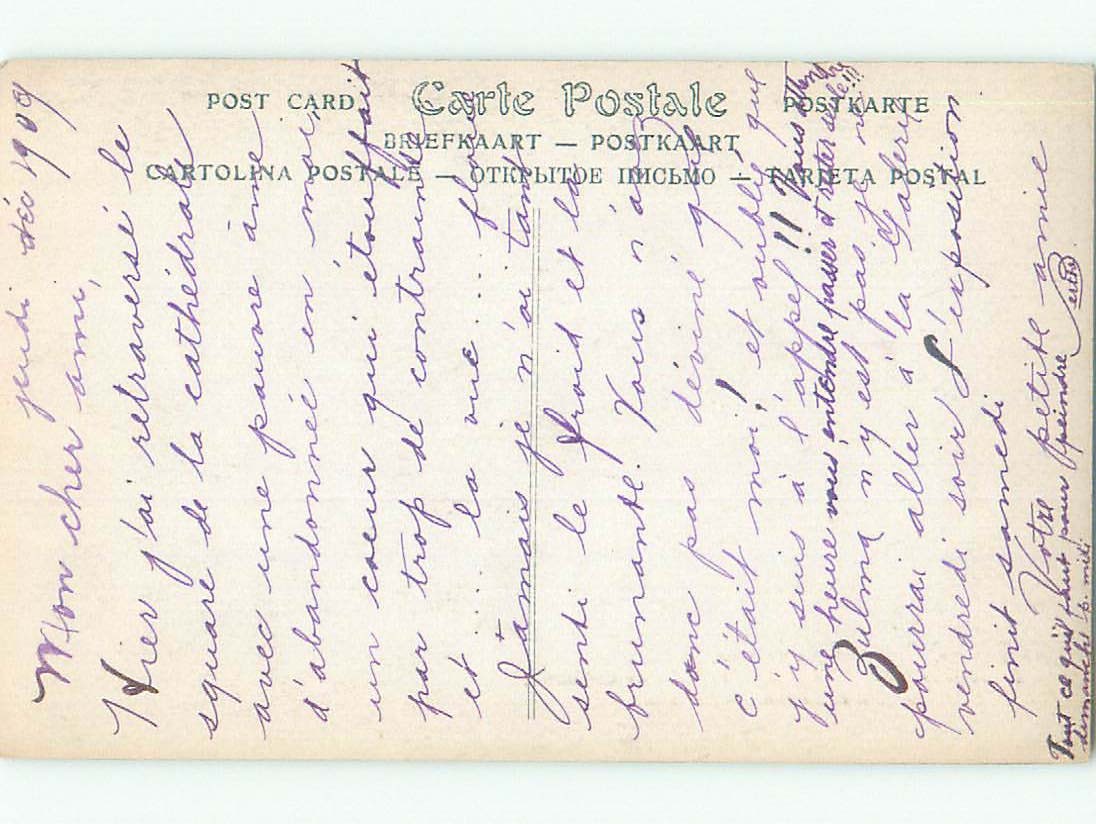 POST CARD Carte Postale POSTKARTE
BRIEFKAART — POSTKAART
CARTOLINA POSTALE — ОТКРЫТОЕ ПИСЬМО — TARJETA POSTAL
jeudi déc 1909
Mon cher ami,
Hier j'ai retraversé le
square de la cathédrale
avec une pauvre âme
d'abandonnée en moi,
un coeur qui étouffait
par trop de contrainte
et .... la vue ....
Jamais je n'ai tant
senti le froid et la
brumante. Vous n'avez
donc pas deviné que
c'était moi! et oublié que
j'y suis à l'appel!! Vous
une heure vous entendre passer et
Zulma n'y est pas je ne
pourrai aller à la Galerie
vendredi soir & l'exposition
finit samedi
Votre petite amie
Tout ce qu'il faut pour peindre
dimanche p. midi